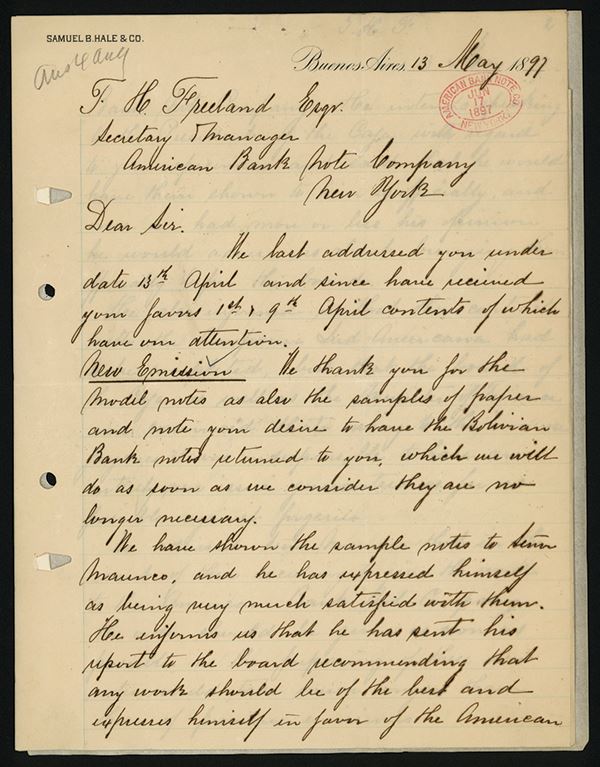 SAMUEL B. HALE & CO.
Buenos Aires, 13 May 1897
AMERICAN BANK NOTE CO.
JUN
17
1897
NEW YORK
T. H. Freeland Esqr.
Secretary & Manager
American Bank Note Company
New York
Dear Sir.
We last addressed you under
date 13th April and since have recieved
your favors 1st & 9th April contents of which
have our attention.
New Emission We thank you for the
Model notes as also the samples of paper
and note your desire to have the Bolivian
Bank notes returned to you, which we will
do as soon as we consider they are no
longer necessary.
We have shown the sample notes to Señor
and he has expressed himself
as being very much satisfied with them.
He informs us that he has sent his
report to the board recommending that
any work should be of the best and
expresses himself in favor of the American